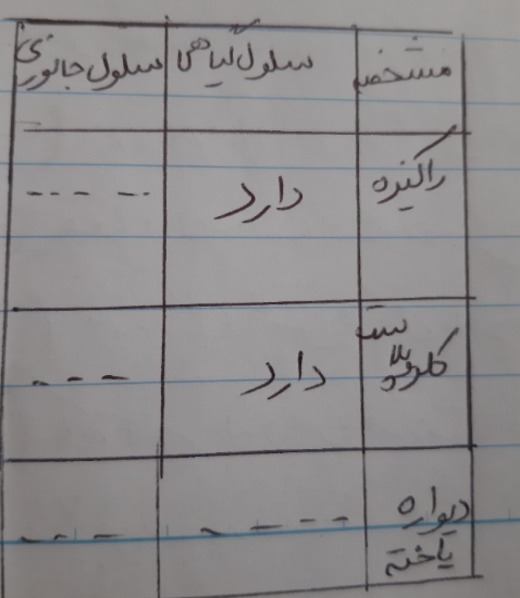 مشخصه سلول گیاهی سلول جانوری
راکیزه دارد - - - -
کلروپلاست دارد - - -
دیواره یاخته - - - - - - -